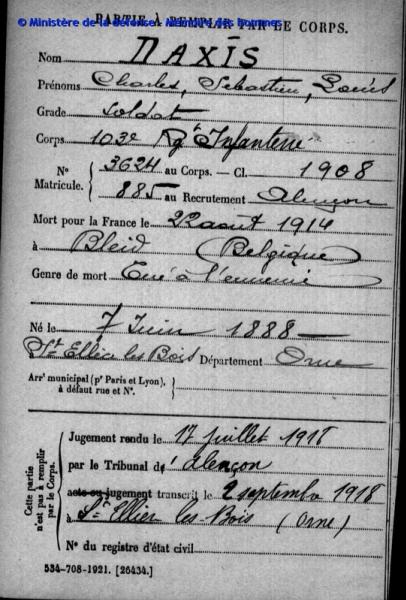 PARTIE À REMPLIR PAR LE CORPS.
© Ministère de la défense - Mémoire des hommes
Nom DAXIS
Prénoms Charles, Sébastien, Louis
Grade soldat
Corps 103e Rgt Infanterie
N° 3624 au Corps. — Cl. 1908
Matricule. 885 au Recrutement Alençon
Mort pour la France le 22 août 1914
à Bleid (Belgique)
Genre de mort Tué à l'ennemi
Né le 7 Juin 1888
St Ellier les Bois Département Orne
Arrt municipal (pr Paris et Lyon),
à défaut rue et N°.
Cette partie
n'est pas à remplir
par le Corps.
Jugement rendu le 17 juillet 1918
par le Tribunal d'Alençon
acte ou jugement transcrit le 2 septembre 1918
à St Ellier-les-Bois (Orne)
N° du registre d'état civil
534-708-1921. [26434.]